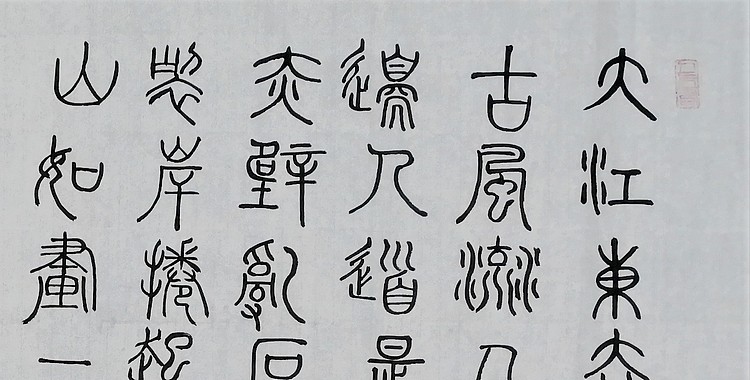 大江東去
古風流人
邊人道是
赤壁亂石
裂岸捲起
山如畫一